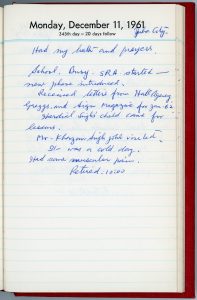 Monday, December 11, 1961
345th day – 20 days follow
Had my bath and prayers.
School. Busy. SRA started —
new phase introduced.
Received letters from Hall Agency,
Greggs. and Argus Magazine for Jan 62
sight child came for
lessons.
Mr. high visited.
It was a cold day.
Had some muscular pain.
Retired - 10:00